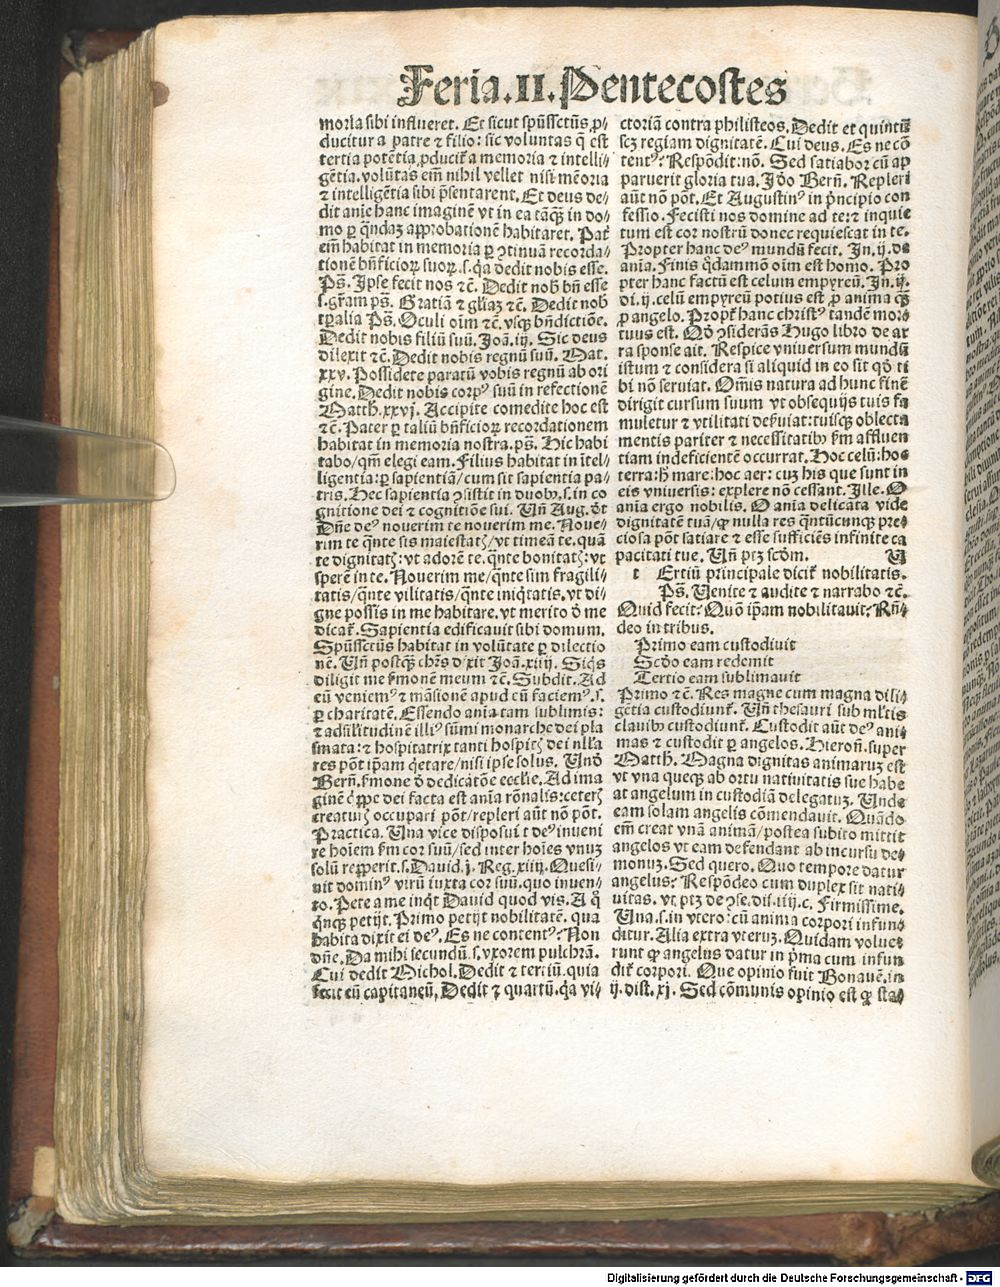 Feria.II.Pentecostes
moria sibi influeret. Et sicut spūssctūs ꝓ⸗
ducitur a patre ⁊ filio: sic voluntas q̄ est
tertia potētia ꝓducit̄ a memoria ⁊ intelli⸗
gētia. volūtas eīm nihil vellet nisi mēoria
⁊ intelligētia sibi p̄sentarent. Et deus de⸗
dit anīe hanc imaginē vt in ea tāqȝ in do⸗
mo ꝑ q̄ndaȝ approbationē habitaret. Pat̄
eīm habitat in memoria ꝑ ꝯtinuā recorda⸗
tionē bn̄ficioꝝ suoꝝ .s. q̄a dedit nobis esse.
Ps̄. Ipse fecit nos ⁊c̄. Dedit nob̄ bn̄ esse
.s. gr̄am ps̄. Gratiā ⁊ gl̄iaȝ ⁊c̄. Dedit nob̄
tꝑalia Ps̄. Oculi oīm ⁊c̄. vsqȝ bn̄dictiōe.
Dedit nobis filiū suū. Joā. iij. Sic deus
dilexit ⁊c̄. Dedit nobis regnū suū. Mat.
xxv. Possidete paratū vobis regnū ab ori
gine. Dedit nobis corpꝰ suū in refectionē
Matth̄. xxvj. Accipite comedite hoc est
⁊c̄. Pater ꝑ taliū bn̄ficioꝝ recordationem
habitat in memoria nostra. ps̄. Hic habi
tabo/qm̄ elegi eam. Filius habitat in ītel⸗
ligentia: ꝑ sapientiā/cum sit sapientia pa⸗
tris. Hec sapientia ꝯsistit in duobꝫ .s. in co
gnitione dei ⁊ cognitiōe sui. Un̄ Aug. d̄t
Dn̄e deꝰ nouerim te nouerim me. Noue⸗
rim te q̄nte sis maiestatꝭ/vt timeā te. quā
te dignitatꝭ: vt adorē te. q̄nte bonitatꝭ: vt
sperē in te. Nouerim me/q̄nte sim fragili⸗
tatis/q̄nte vilitatis/q̄nte iniq̄tatis. vt di⸗
gne possis in me habitare. vt merito d̄ me
dicat̄. Sapientia edificauit sibi domum.
Spūssctūs habitat in volūtate ꝑ dilectio
nē. Un̄ postqȝ chr̄s dixit Joā. xiiij. Siq̄s
diligit me s̄monē meum ⁊c̄. Subdit. Ad
eū veniemꝰ ⁊ māsionē apud eū faciemꝰ .s.
ꝑ charitatē. Essendo anīa tam sublimis:
⁊ ad sīlitudinē illiꝰ sūmi monarche dei pla
smata: ⁊ hospitatrix tanti hospitꝭ dei nl̄la
res pōt ip̄am q̄etare/nisi ipse solus. Un̄
Bern̄. s̄mone d̄ dedicatōe ecclīe. Ad ima
ginē q̄ppe dei facta est anīa rōnalis: ceterꝭ
creaturꝭ occupari pōt/repleri aūt nō pōt.
Practica. Una vice disposuit deꝰ inueni
re hoīem s̄m cor suū/sed inter hoīes vnuȝ
solū repperit .s. Dauid. j. Reg. xiiij. Quesi⸗
uit dominꝰ virū iuxta cor suū. quo inuen⸗
to. Pete a me inq̄t Dauid quod vis. A q̄
q̄nqȝ petijt. Primo petijt nobilitatē. qua
habita dixit ei deꝰ. Es ne contentꝰ? Non
dn̄e. Da mihi secundū .s. vxorem pulchrā.
Cui dedit Michol. Dedit ⁊ tertiū. quia
fecit eū capitaneū. Dedit ⁊ quartū. q̄a vi⸗
ctoriā contra philisteos. Dedit et quintū
scȝ regiam dignitatē. Cui deus. Es ne cō
tentꝰ? Respōdit: nō. Sed satiabor cū ap
paruerit gloria tua. Jdo Bern̄. Repleri
aūt non pōt. Et Augustinꝰ in p̄ncipio con
fessio. Fecisti nos domine ad te: ⁊ inquie
tum est cor nostrū donec requiescat in te.
Propter hanc deꝰ mundū fecit. Jn. ij. de
anīa. Finis q̄dammō oīm est homo. Pro
pter hanc factū est celum empyreū. Jn. ij.
di. ij. celū empyreū potius est ꝓ anima qȝ
ꝓ angelo. Propt̄ hanc christꝰ tandē mor⸗
tuus est. Qd̄ ꝯsiderās Hugo libro de ar
ra sponse ait. Respice vniuersum mundū
istum ⁊ considera si aliquid in eo sit qd̄ ti
bi nō seruiat. Om̄is natura ad hunc finē
dirigit cursum suum vt obsequijs tuis fa
muletur ⁊ vtilitati deẜuiat: tuisqȝ oblecta
mentis pariter ⁊ necessitatibꝫ s̄m affluen
tiam indeficientē occurrat. Hoc celū: hec
terra: h̄ mare: hoc aer: cuȝ his que sunt in
eis vniuersis: explere nō cessant. Jlle. O
anīa ergo nobilis. O anīa delicata vide
dignitatē tuā/ꝙ nulla res q̄ntūcunqȝ pre⸗
ciosa pōt satiare ⁊ esse sufficiēs infinite ca
pacitati tue. Un̄ ptȝ scd̄m. U
t Ertiū principale dicit̄ nobilitatis.
Ps̄. Uenite ⁊ audite ⁊ narrabo ⁊c̄.
Quid fecit? Quō ip̄am nobilitauit? Rn̄⸗
deo in tribus.
Primo eam custodiuit
Scd̄o eam redemit
Tertio eam sublimauit
Primo ⁊c̄. Res magne cum magna dili⸗
gētia custodiunt̄. Un̄ thesauri sub ml̄tis
clauibꝫ custodiunt̄. Custodit aūt deꝰ ani⸗
mas ⁊ custodit ꝑ angelos. Hieron̄. super
Matth̄. Magna dignitas animaruȝ est
vt vna queqȝ ab ortu natiuitatis sue habe
at angelum in custodiā delegatuȝ. Unde
eam solam angelis cōmendauit. Quādo
eīm creat vnā animā/postea subito mittit
angelos vt eam defendant ab incursu de⸗
monuȝ. Sed quero. Quo tempore datur
angelus? Respōdeo cum duplex sit nati⸗
uitas. vt ptȝ de ꝯse. dis. iiij. c. Firmissime.
Una .s. in vtero: cū anima corpori infun⸗
ditur. Alia extra vteruȝ. Quidam volue⸗
runt ꝙ angelus datur in p̄ma cum infun
dit̄ corpori. Que opinio fuit Bonauē. in
ij. dist. xj. Sed cōmunis opinio est ꝙ sta⸗
Digitalisierung gefördert durch die Deutsche Forschungsgemeinschaft - DFG